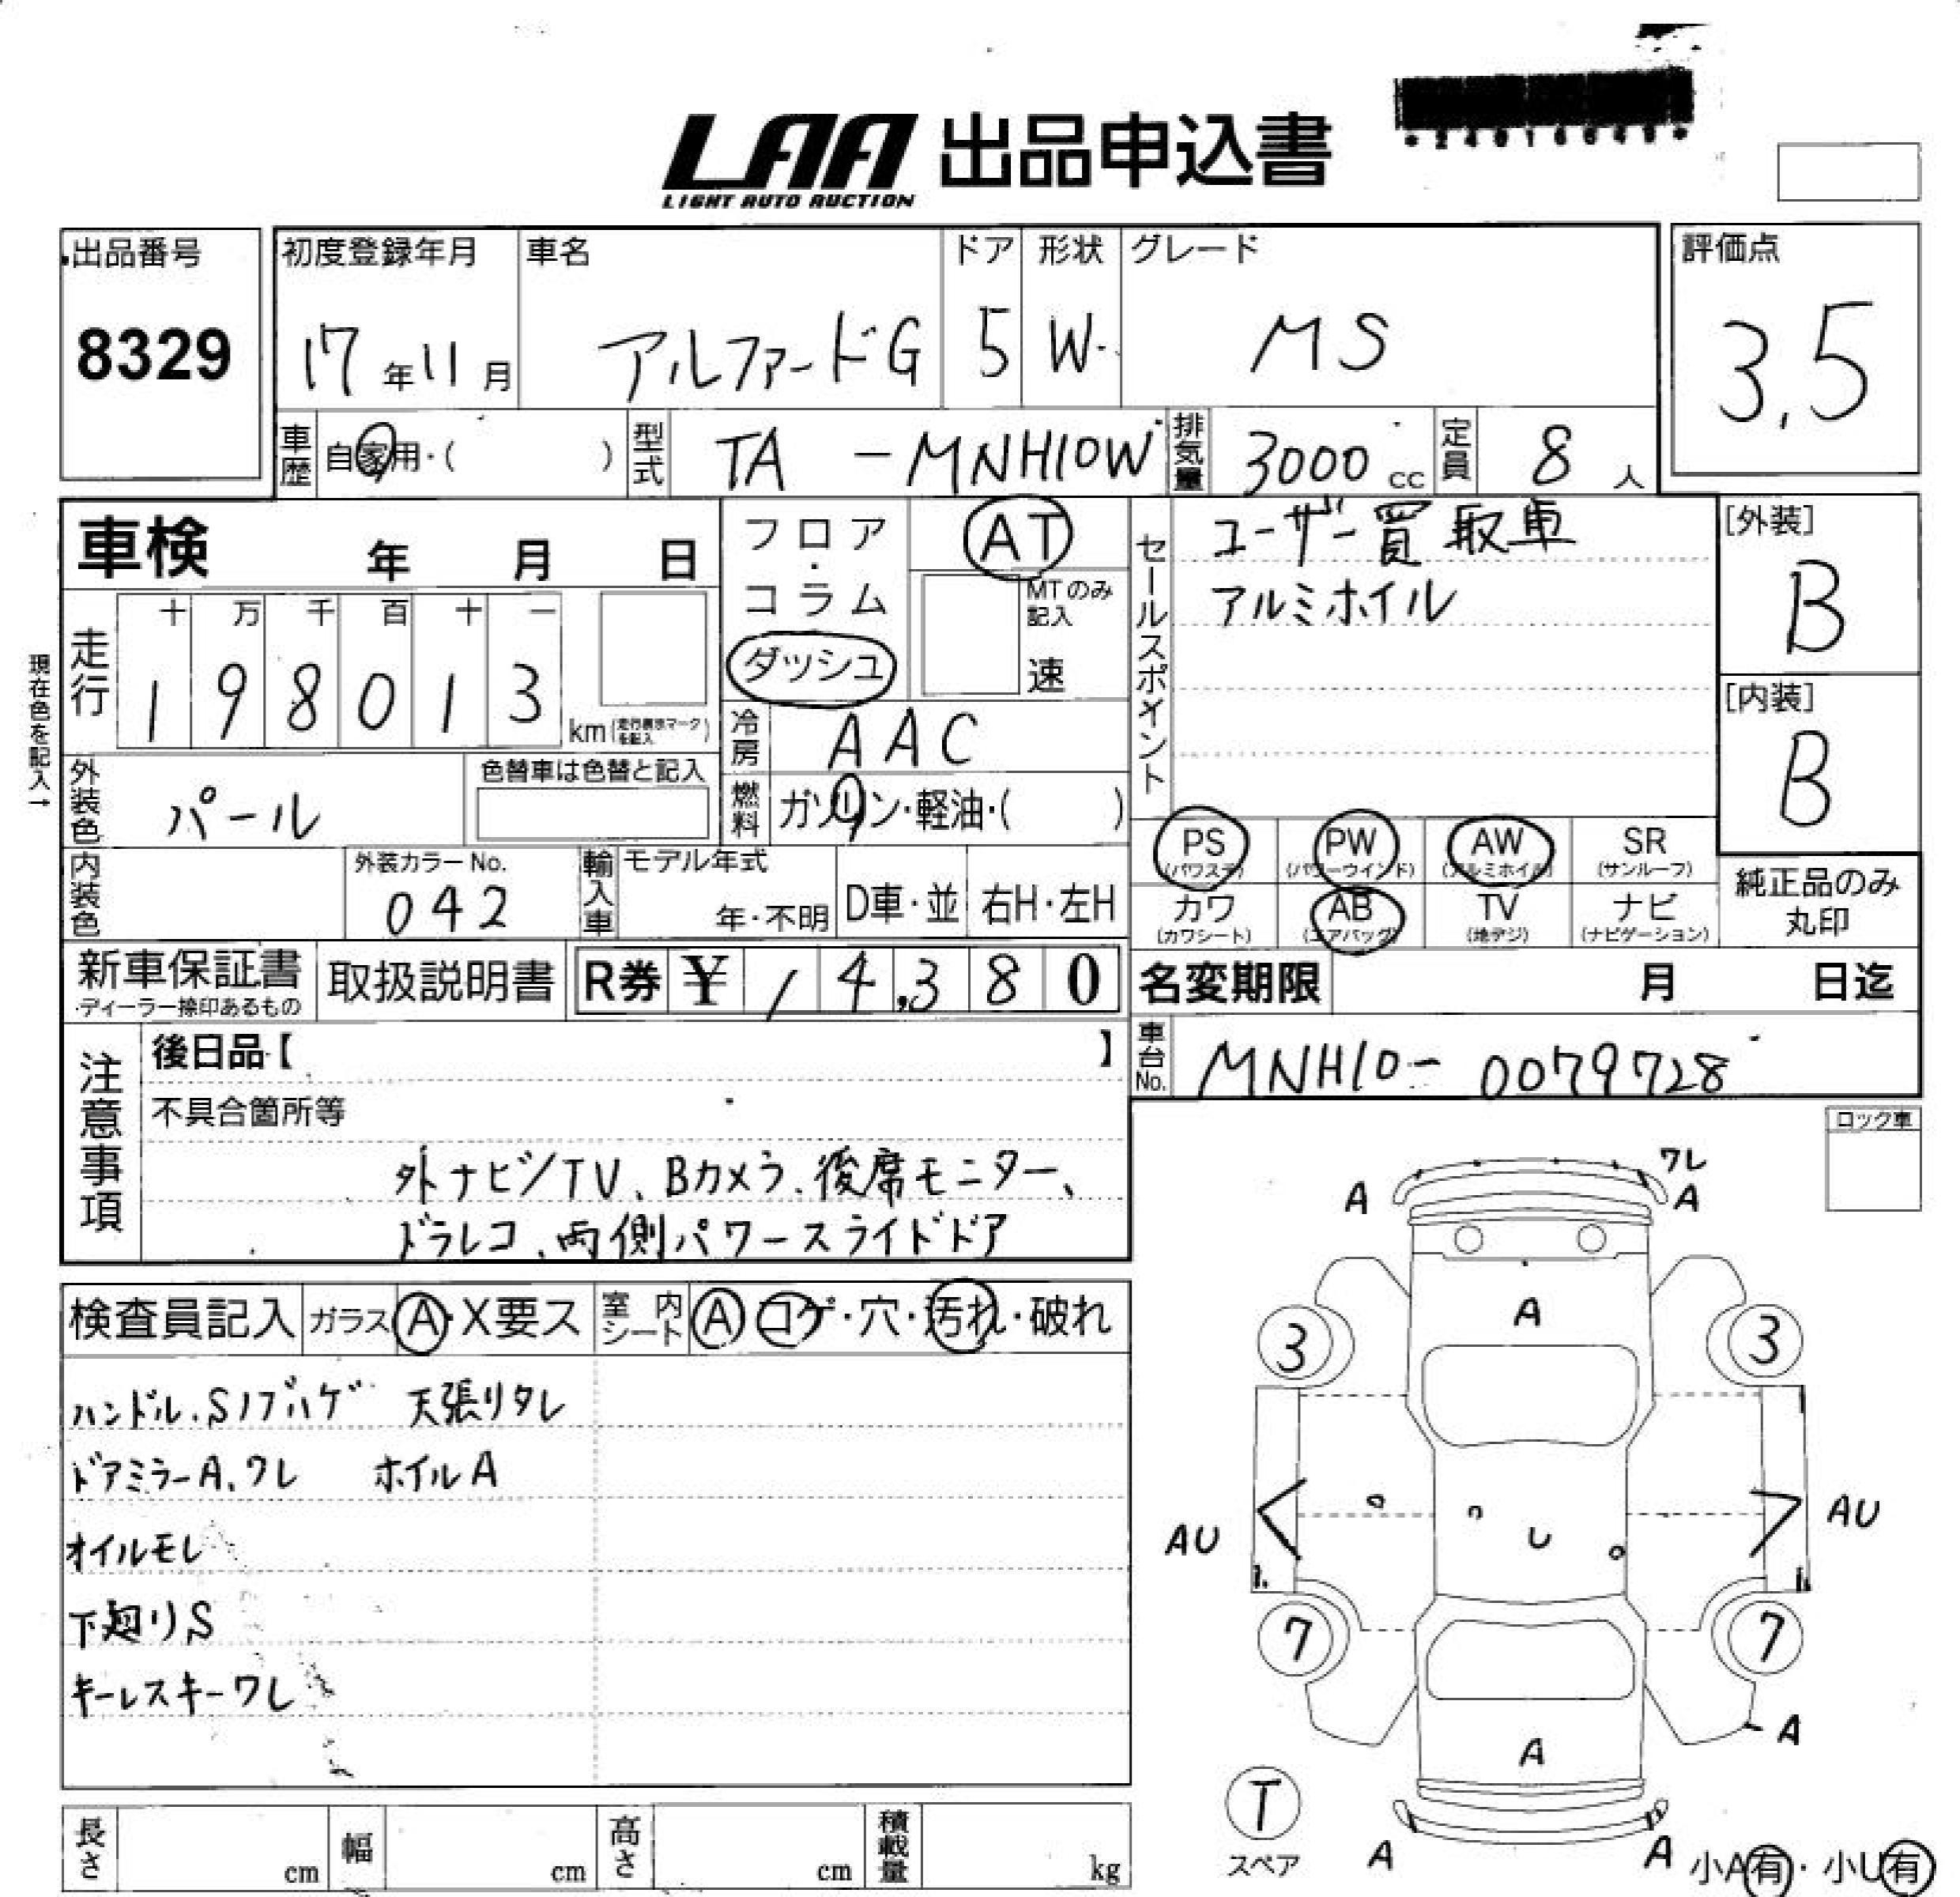 LAA 出品申込書
LIGHT AUTO AUCTION
出品番号
8329
初度登録年月
17年11月
車名
アルファードG
ドア
5
形状
W
グレード
MS
評価点
3.5
車歴 自家用・( )
型式 TA -MNH10W
排気量 3000 cc
定員 8 人
車検 年 月 日
フロア・コラム
ダッシュ
AT
MTのみ記入
速
セールスポイント
ユーザー買取車
アルミホイル
[外装]
B
[内装]
B
現在色を記入→
走行
十 万 千 百 十 一
1 9 8 0 1 3
km(走行表示マークを記入)
冷房 AAC
燃料 ガソリン・軽油・( )
外装色 パール
色替車は色替と記入
内装色
外装カラーNo.
042
輸入車
モデル年式
年・不明
D車・並
右H・左H
PS (パワステ)
PW (パワーウインド)
AW (アルミホイル)
SR (サンルーフ)
カワ (カワシート)
AB (エアバッグ)
TV (地デジ)
ナビ (ナビゲーション)
純正品のみ
丸印
新車保証書
・ディーラー捺印あるもの
取扱説明書
R券 ¥ / 4,380
名変期限 月 日迄
車台No. MNH10-0079728
注意事項
後日品【 】
不具合箇所等
外ナビ/TV、Bカメラ、後席モニター、
ドラレコ、両側パワースライドドア
ロック車
検査員記入
ガラス A・X要ス
室内シート A コゲ・穴・汚れ・破れ
ハンドル、Sノブハゲ 天張りタレ
ドアミラーA、ワレ ホイルA
オイルモレ
下廻りS
キーレスキーワレ
ワレ
A A
A
3 3
AU AU
U
7 7
A
A
T
スペア
A A
小A有・小U有
長さ cm
幅 cm
高さ cm
積載量 kg